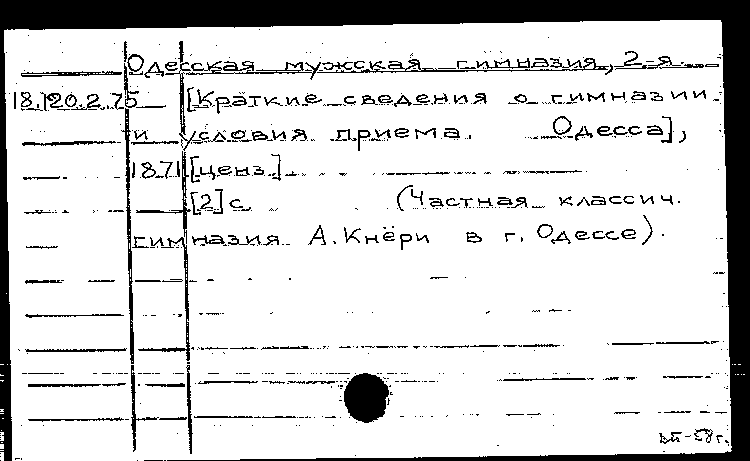 Одесская мужская гимназия, 2-я.
18.120.2.75 [Краткие сведения о гимназии
и условия приема. Одесса],
1871 [ценз.]
[2] с. (Частная классич.
гимназия А. Кнёри в г. Одессе).